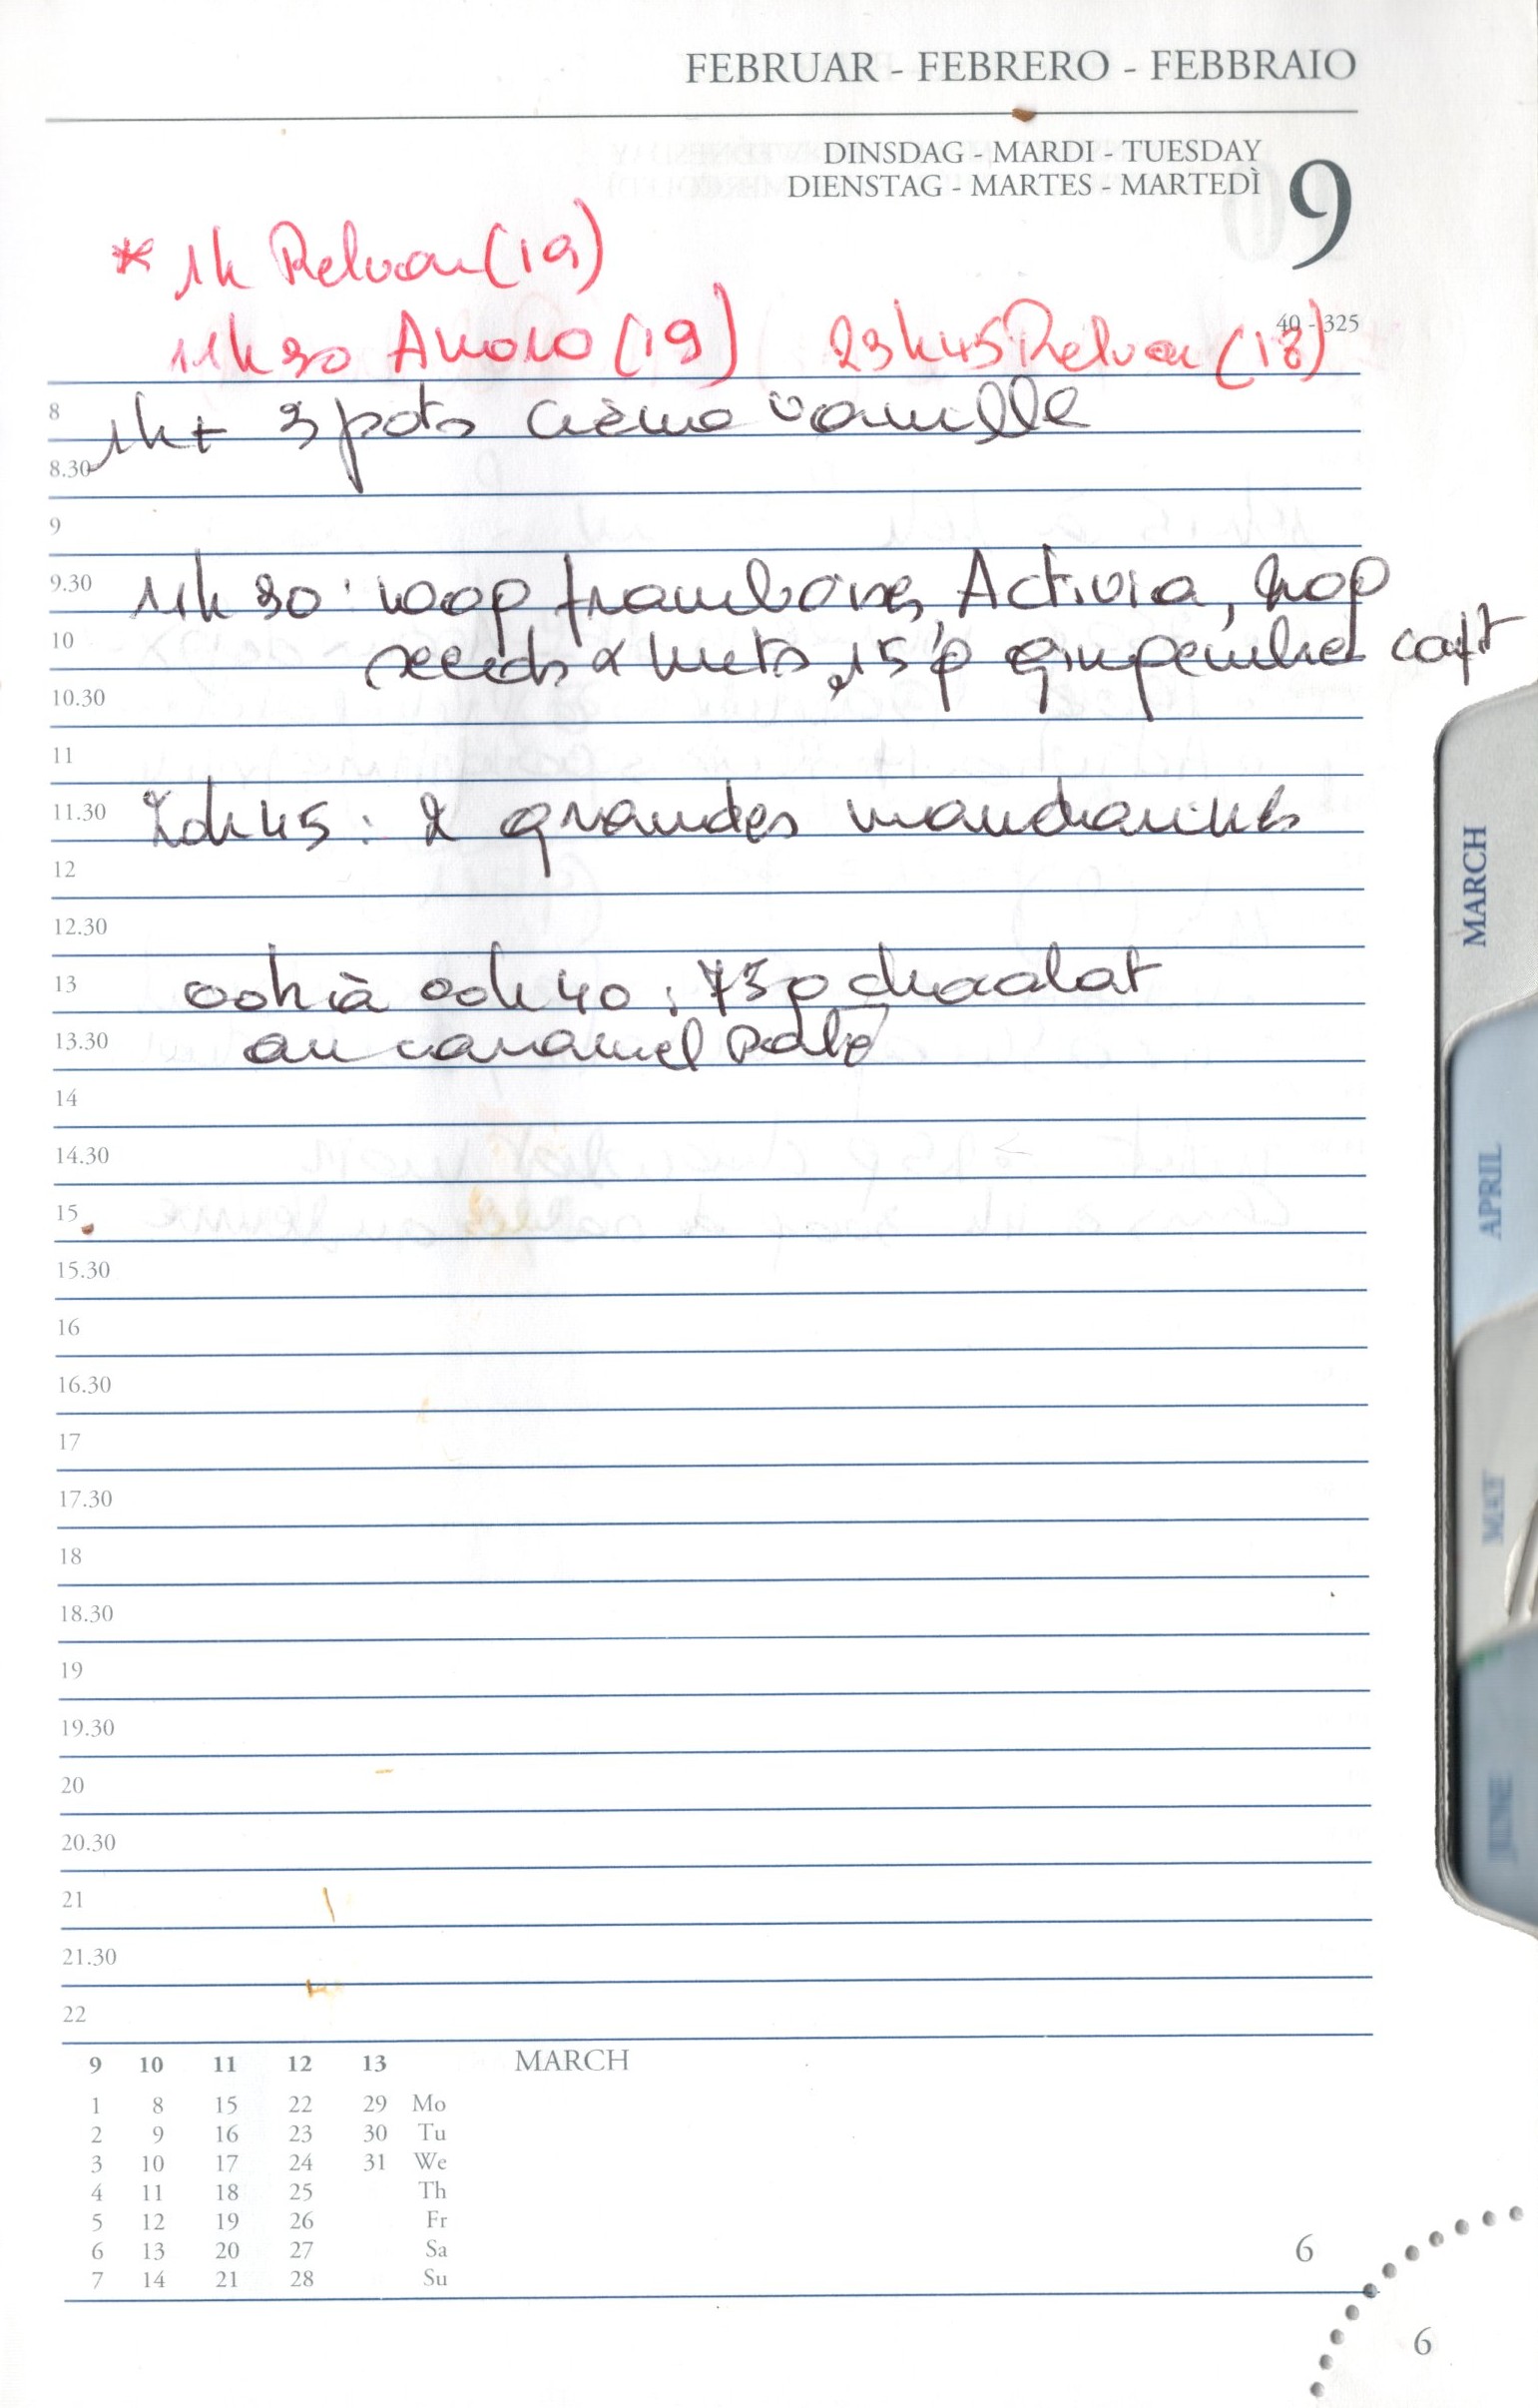 FEBRUAR - FEBRERO - FEBBRAIO
DINSDAG - MARDI - TUESDAY
DIENSTAG - MARTES - MARTEDÌ
9
40 - 325
* 1h Relvar (19)
11h30 Anoro (19) 23h45 Relvar (18)
8
1h+ 3 pots crème vanille
8.30
9
9.30
11h30 : 100g framboises, Activia, 40g
10
seeds & nuts, 15g gingembre conft
10.30
11
11.30
20h45 : 2 grandes mandarines
12
12.30
13
00h à 00h40 : 75g chocolat
13.30
au caramel salé
14
14.30
15
15.30
16
16.30
17
17.30
18
18.30
19
19.30
20
20.30
21
21.30
22
9 10 11 12 13 MARCH
1 8 15 22 29 Mo
2 9 16 23 30 Tu
3 10 17 24 31 We
4 11 18 25 Th
5 12 19 26 Fr
6 13 20 27 Sa
7 14 21 28 Su
6
6
MARCH
APRIL
MAY
JUNE